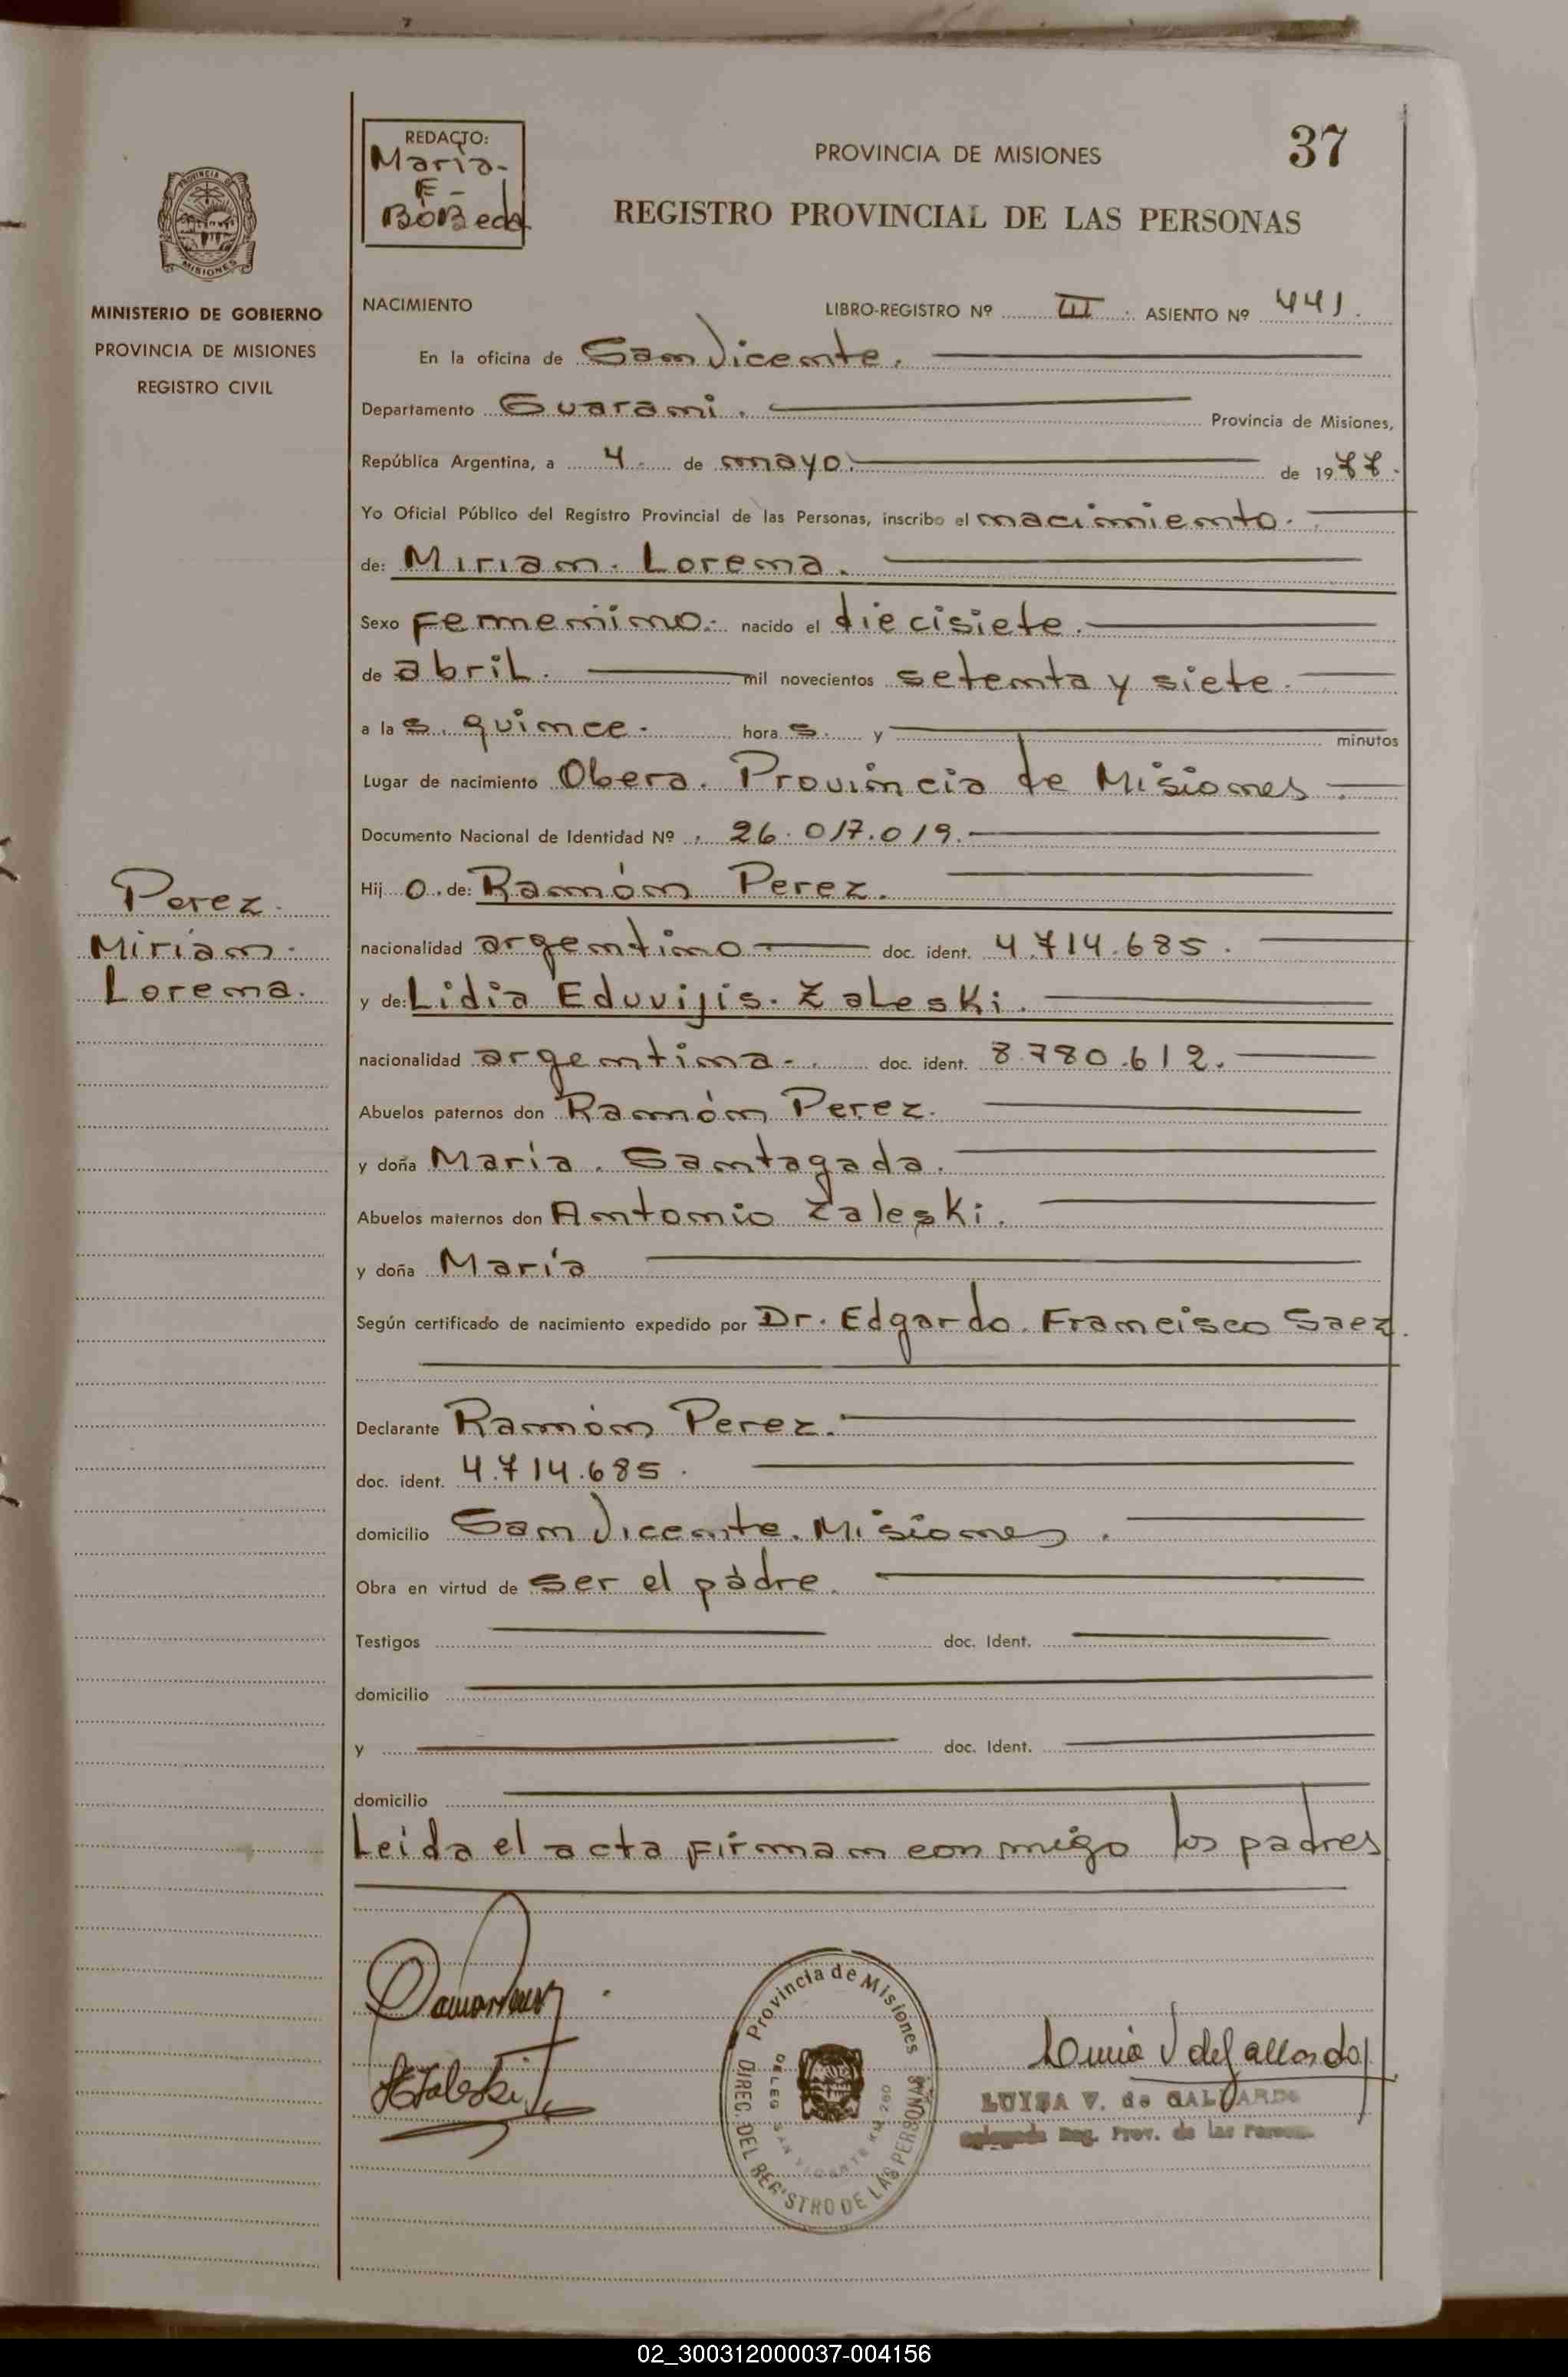 REDACTO:
Maria-
E-
BóBeda
PROVINCIA DE MISIONES
37
REGISTRO PROVINCIAL DE LAS PERSONAS
PROVINCIA DE
MISIONES
MINISTERIO DE GOBIERNO
PROVINCIA DE MISIONES
REGISTRO CIVIL
NACIMIENTO LIBRO-REGISTRO Nº III. ASIENTO Nº 441.
En la oficina de San Vicente.
Departamento Guarani. Provincia de Misiones,
República Argentina, a 4. de mayo. de 1977.
Yo Oficial Público del Registro Provincial de las Personas, inscribo el nacimiento.
de: Miriam. Lorena.
Sexo Femenino. nacido el diecisiete.
de abril. mil novecientos setenta y siete.
a la s. quince. hora s. y minutos
Lugar de nacimiento Obera. Provincia de Misiones.
Documento Nacional de Identidad Nº 26.017.019.
Hij o. de: Ramón Perez.
nacionalidad argentino doc. ident. 4.714.685.
y de: Lidia Eduvijis. Zaleski.
nacionalidad argentina. doc. ident. 8.780.612.
Abuelos paternos don Ramón Perez.
y doña María. Santagada.
Abuelos maternos don Antonio Zaleski.
y doña María
Según certificado de nacimiento expedido por Dr. Edgardo. Francisco Saez.
Declarante Ramón Perez.
doc. ident. 4.714.685.
domicilio San Vicente. Misiones.
Obra en virtud de ser el padre.
Testigos doc. Ident.
domicilio
y doc. Ident.
domicilio
Leida el acta firman conmigo los padres
Perez.
Miriam.
Lorena.
Provincia de Misiones
DIREC. DEL REGISTRO DE LAS PERSONAS
DELEG SAN VICENTE KM 260
LUISA V. de GALLARDO
Reg. Prov. de las
02_300312000037-004156